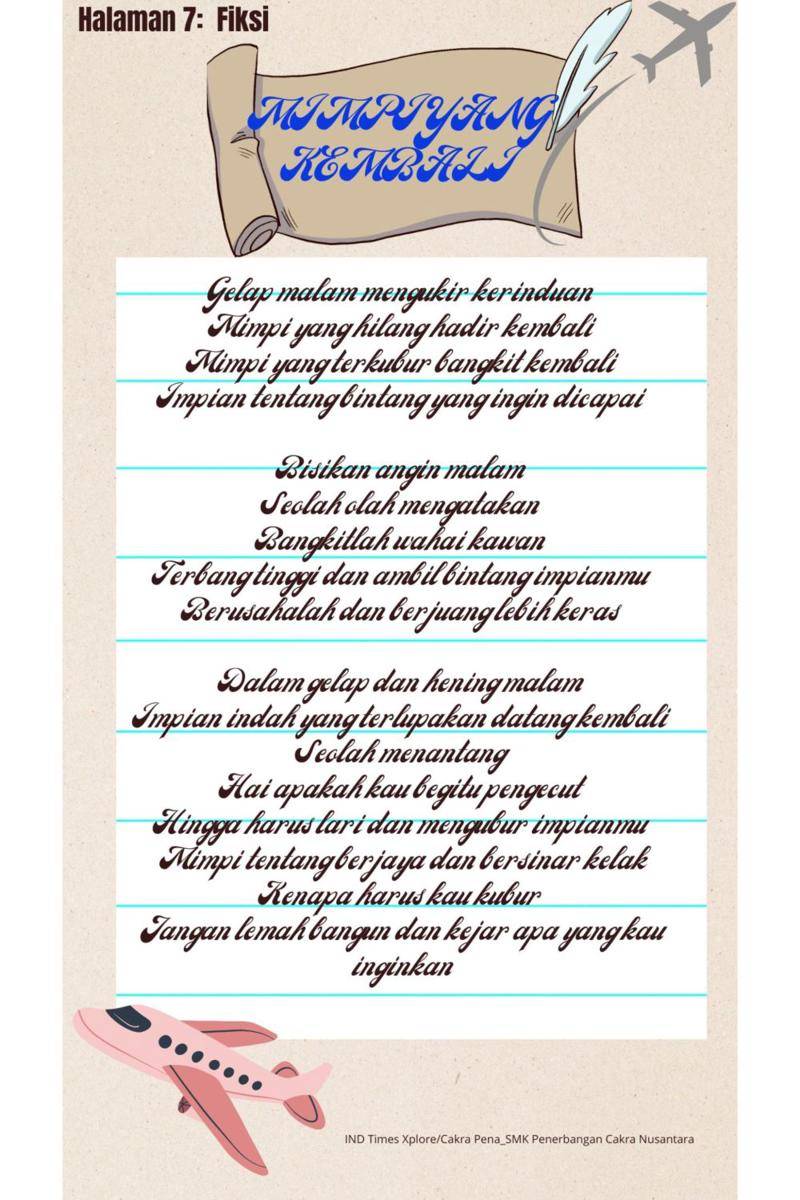 Halaman 7: Fiksi
MIMPI YANG
KEMBALI
Gelap malam mengukir kerinduan
Mimpi yang hilang hadir kembali
Mimpi yang terkubur bangkit kembali
Impian tentang bintang yang ingin dicapai
Bisikan angin malam
Seolah olah mengatakan
Bangkitlah wahai kawan
Terbang tinggi dan ambil bintang impianmu
Berusahalah dan berjuang lebih keras
Dalam gelap dan hening malam
Impian indah yang terlupakan datang kembali
Seolah menantang
Hai apakah kau begitu pengecut
Hingga harus lari dan mengubur impianmu
Mimpi tentang berjaya dan bersinar kelak
Kenapa harus kau kubur
Jangan lemah bangun dan kejar apa yang kau
inginkan
IND Times Xplore/Cakra Pena_SMK Penerbangan Cakra Nusantara